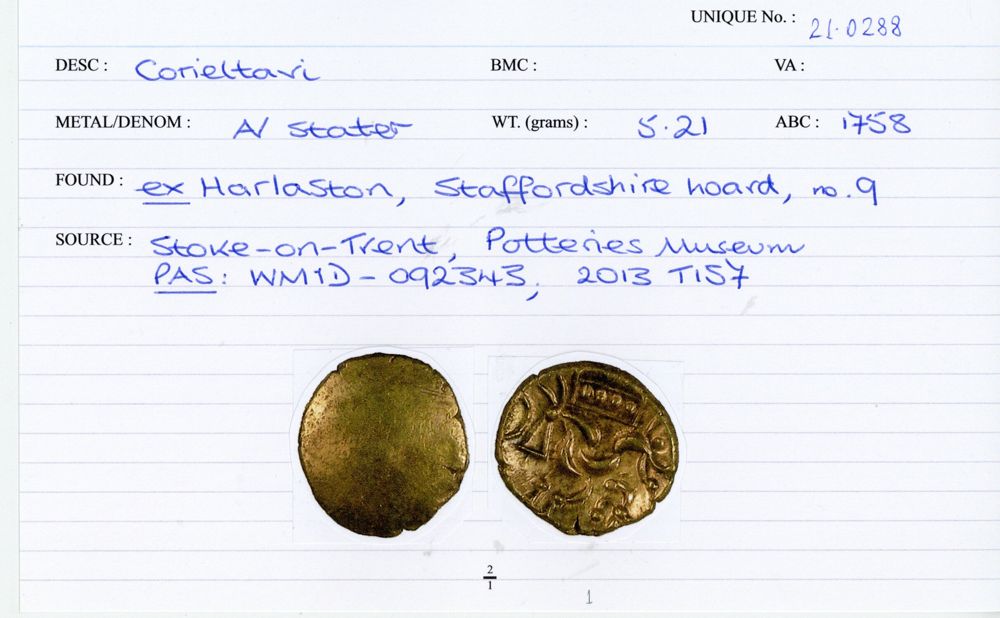 UNIQUE No. : 21.0288
DESC : Corieltavi BMC : VA :
METAL/DENOM : A/ stater WT. (grams) : 5.21 ABC : 1758
FOUND : ex Harlaston, Staffordshire hoard, no. 9
SOURCE : Stoke-on-Trent, Potteries Museum
PAS: WMID-092343, 2013 T157
2
1
1